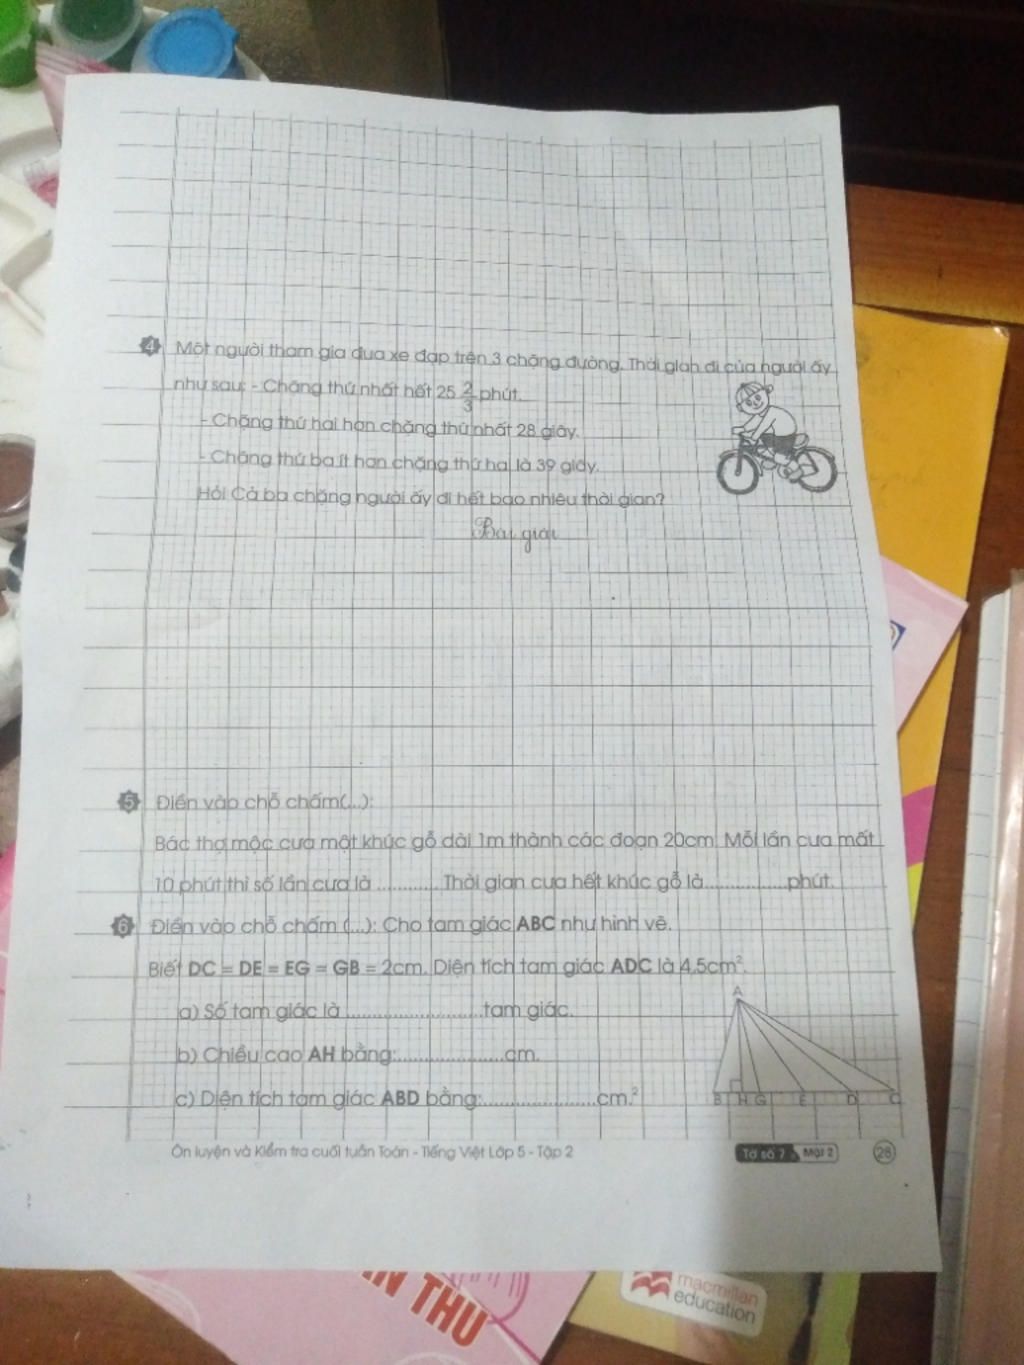 4 Một người tham gia đua xe đạp trên 3 chặng đường. Thời gian đi của người ấy
như sau: - Chặng thứ nhất hết 25 2/3 phút.
- Chặng thứ hai hơn chặng thứ nhất 28 giây.
- Chặng thứ ba ít hơn chặng thứ hai là 39 giây.
Hỏi Cả ba chặng người ấy đi hết bao nhiêu thời gian?
Bài giải
5 Điền vào chỗ chấm(...):
Bác thợ mộc cưa một khúc gỗ dài 1m thành các đoạn 20cm. Mỗi lần cưa mất
10 phút thì số lần cưa là ............ Thời gian cưa hết khúc gỗ là...............phút.
6 Điền vào chỗ chấm (...): Cho tam giác ABC như hình vẽ.
Biết DC = DE = EG = GB = 2cm. Diện tích tam giác ADC là 4,5cm².
A
a) Số tam giác là .........................tam giác.
b) Chiều cao AH bằng:....................cm.
c) Diện tích tam giác ABD bằng:.....................cm.²
B H G E D C
Ôn luyện và Kiểm tra cuối tuần Toán - Tiếng Việt Lớp 5 - Tập 2
Tờ số 7 Mặt 2 28
N THU
macmillan
education